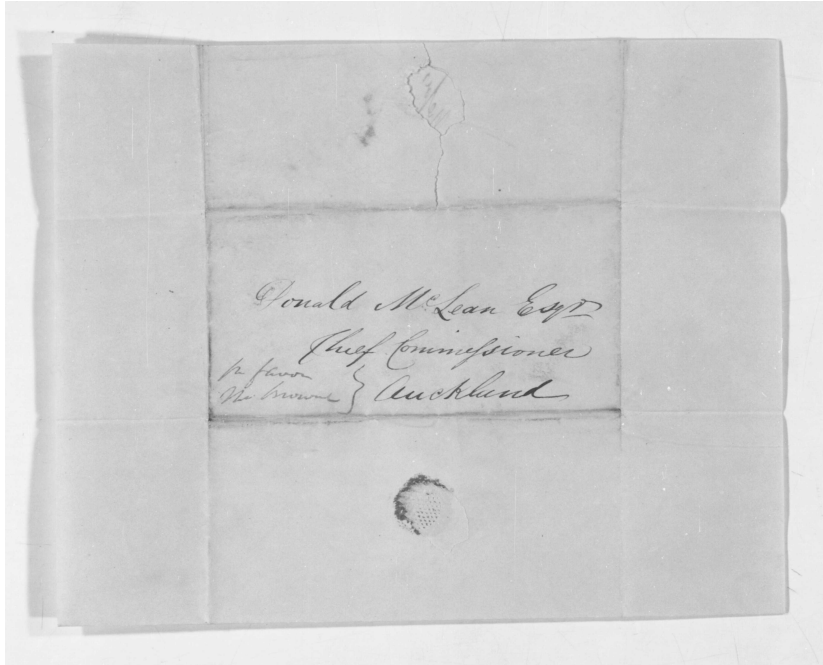 Donald McLean Esqr
Chief Commissioner
pr favor
Mr Browne } Auckland